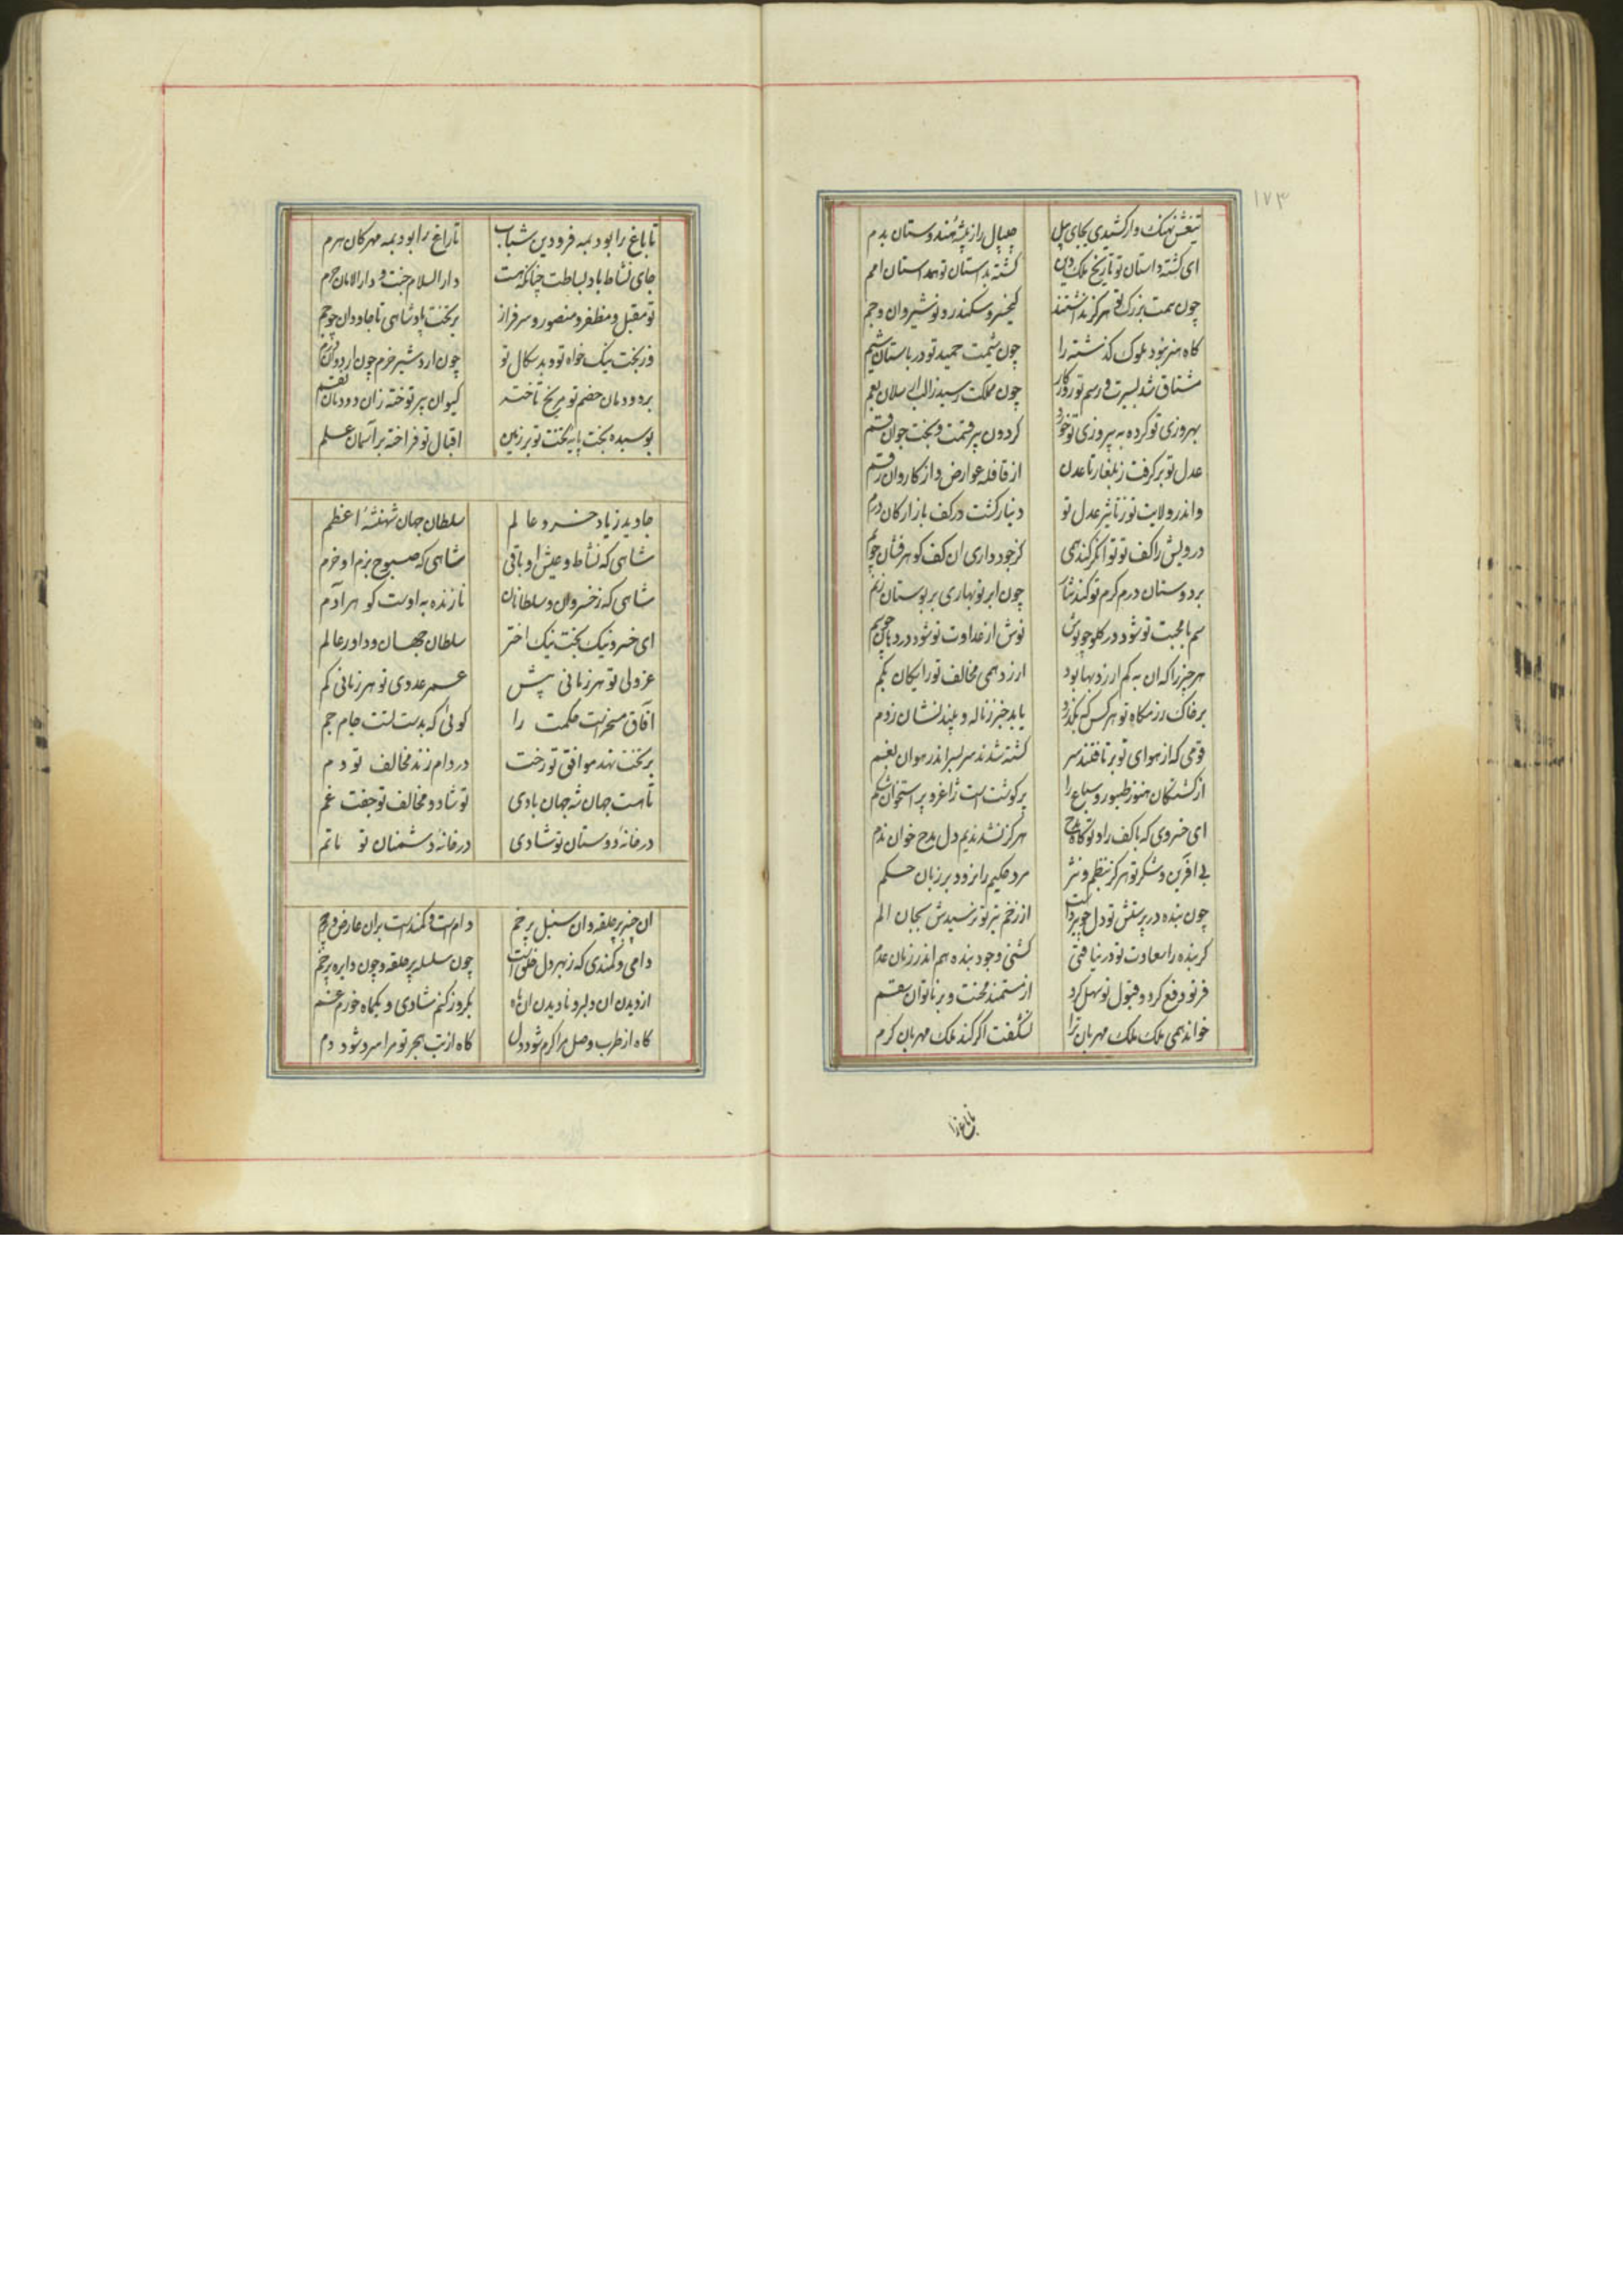 ۱۷۳
تیغش نهنک وار کشیدی بجای پیل چیپال را ز بیشه هندوستان بدم
ای کشته داستان تو تاریخ ملک و دین کشته بداستان تو همداستان امم
چون همت بزرک تو هرکز نداشتند کیخسرو و سکندر و نوشیروان و جم
کاه هنر نبود ملوک کذشته را چون شیمت حمید تو در باستان شیم
مشتاق شد بسیرت و رسم تو روزکار چون مملکت رسید ز الب ارسلان بعم
بهروزی تو کرده به پیروزی تو خود کردون پیر قسمت و بخت جوان قسم
عدل تو برکرفت ز بلغار تا عدن از قافله عوارض و از کاروان رقم
واندر ولایت تو ز تاثیر عدل تو دینار کشت در کف بازارکان درم
درویش را کف تو توانکر کند همی کز جود داری ان کف کوهرفشان چو یم
بر دوستان درم کرم تو کند نثار چون ابر نوبهاری بر بوستان ز نم
سم با محبت تو شود در کلو چو نوش نوش از عداوت تو شود در دهان چو سم
هر چیز را که ان به کم ارزد بها بود ارزد همی مخالف تو رایکان بکم
بر خاک رزمکاه تو هر کس که بکذرد یابد خبر ز ناله و بیند نشان ز دم
قومی که از هوای تو برتافتند سر کشته شدند سربسر اندر هوان بغم
از کشتکان هنوز طیور و سباع را پر کوشت است ژاغر و پر استخوان شکم
ای خسروی که با کف راد تو کاه مدح هرکز نشد ندیم دل مدح خوان ندم
بی افرین و شکر تو هرکز بنظم و نثر مرد حکیم را نرود بر زبان حکم
چون بنده در پرستش تو دل چو تیر داشت از زخم تیر تو نرسیدش بجان الم
کر بنده را سعادت تو در نیافتی کشتی وجود بنده هم اندر زمان عدم
فر تو دفع کرد و قبول تو سهل کرد از مستمند محنت و بر ناتوان سقم
خواند همی ملک ملک مهربان ترا نشکفت اکر کند ملک مهربان کرم
تا باغ را
تا باغ را بود بمه فرودین شباب تا راغ را بود بمه مهرکان هرم
جای نشاط باد بساطت چنانکه هست دار السلام جنت و دار الامان حرم
تو مقبل و مظفر و منصور و سرفراز بر تخت پادشاهی تا جاودان چو جم
وز بخت نیک خواه تو و بدسکال تو چون اردشیر خرم چون اردوان دژم
بر دودمان خصم تو مریخ تاخته کیوان پیر توخته زان دودمان نقم
بوسیده بخت پایه تخت تو بر زمین اقبال تو فراخته بر آسمان علم
جاوید زیاد خسرو عالم سلطان جهان شهنشه اعظم
شاهی که نشاط و عیش او باقی شاهی که صبوح بزم او خرم
شاهی که ز خسروان و سلطانان نازنده به اوست کوهر آدم
ای خسرو نیک بخت نیک اختر سلطان جهان و داور عالم
عز ولی تو هر زمانی پیش عمر عدوی تو هر زمانی کم
آفاق مسخر است حکمت را کوئی که بدست تست جام جم
بر تخت نهد موافق تو رخت در دام زند مخالف تو دم
تا هست جهان شه جهان بادی تو شاد و مخالف تو جفت غم
در خانه دوستان تو شادی در خانه دشمنان تو ماتم
ان چنبر پر حلقه و ان سنبل پر خم دامست و کمند است بران عارض خرم
دامی و کمندی که ز بهر دل خلق است چون سلسله پر حلقه و چون دایره پر خم
از دیدن ان دلبر و نادیدن ان ماه یکروز کنم شادی و یکماه خورم غم
کاه از طرب وصل مرا کرم شود دل کاه از تب هجر تو مرا سرد شود دم